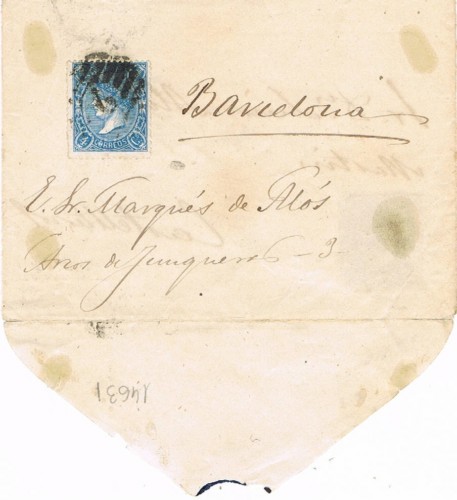 4 CORREOS Cs
Barcelona
E. Sr. Marqués de Alós
Arcos de Junqueras - 3
14631